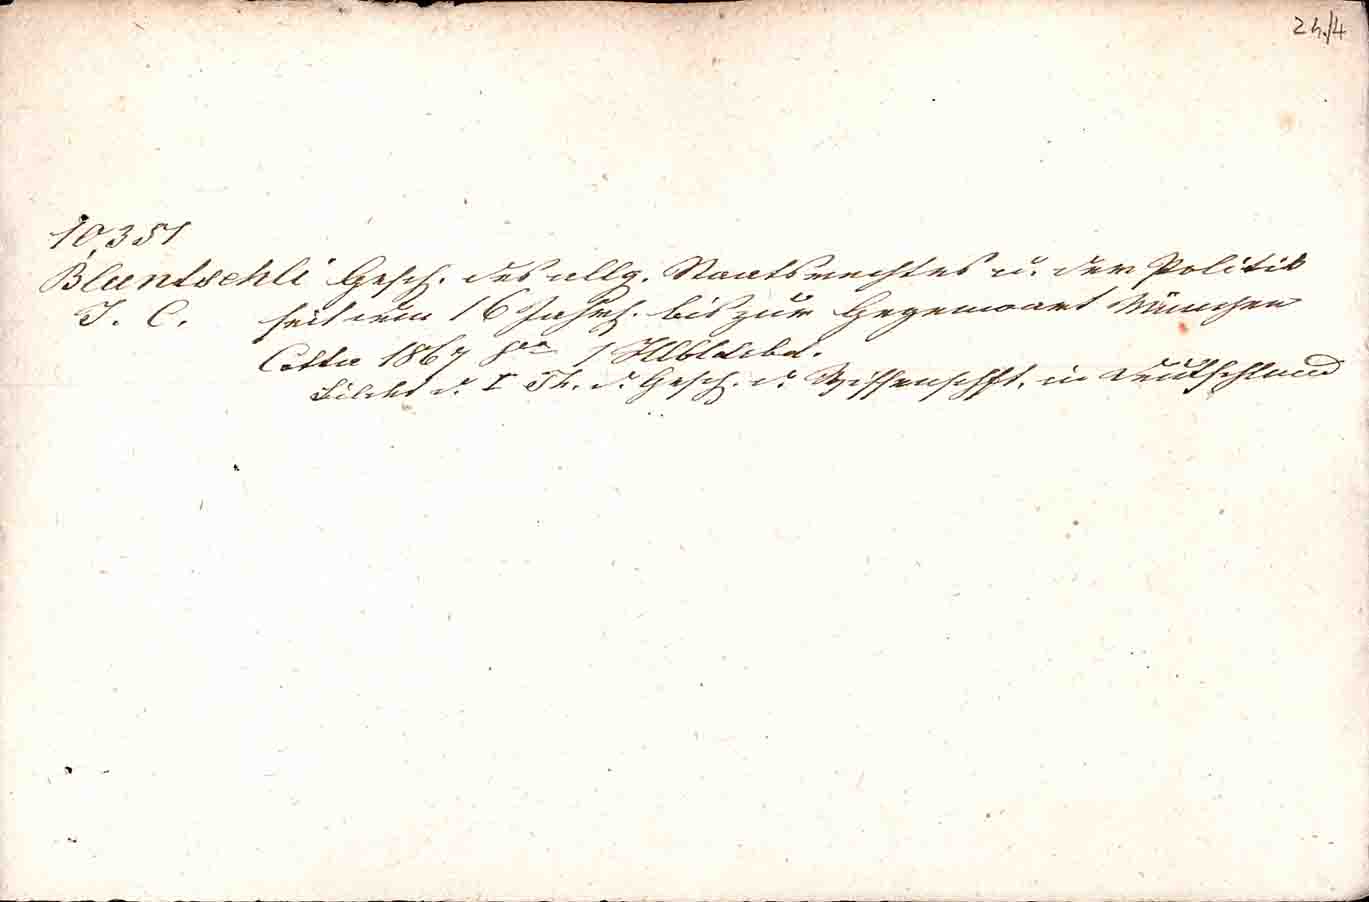 2 h./4
10,351
Bluntschli Gesch. des allg. Staatsrechtes u. der Politik
J. C. seit dem 16 Jahrh. bis zur Gegenwart München
Cotta 1867 8vo 1 Hlblwbd.
Bildet d. I Th. d. Gesch. d. Wissenschft. in Deutschland